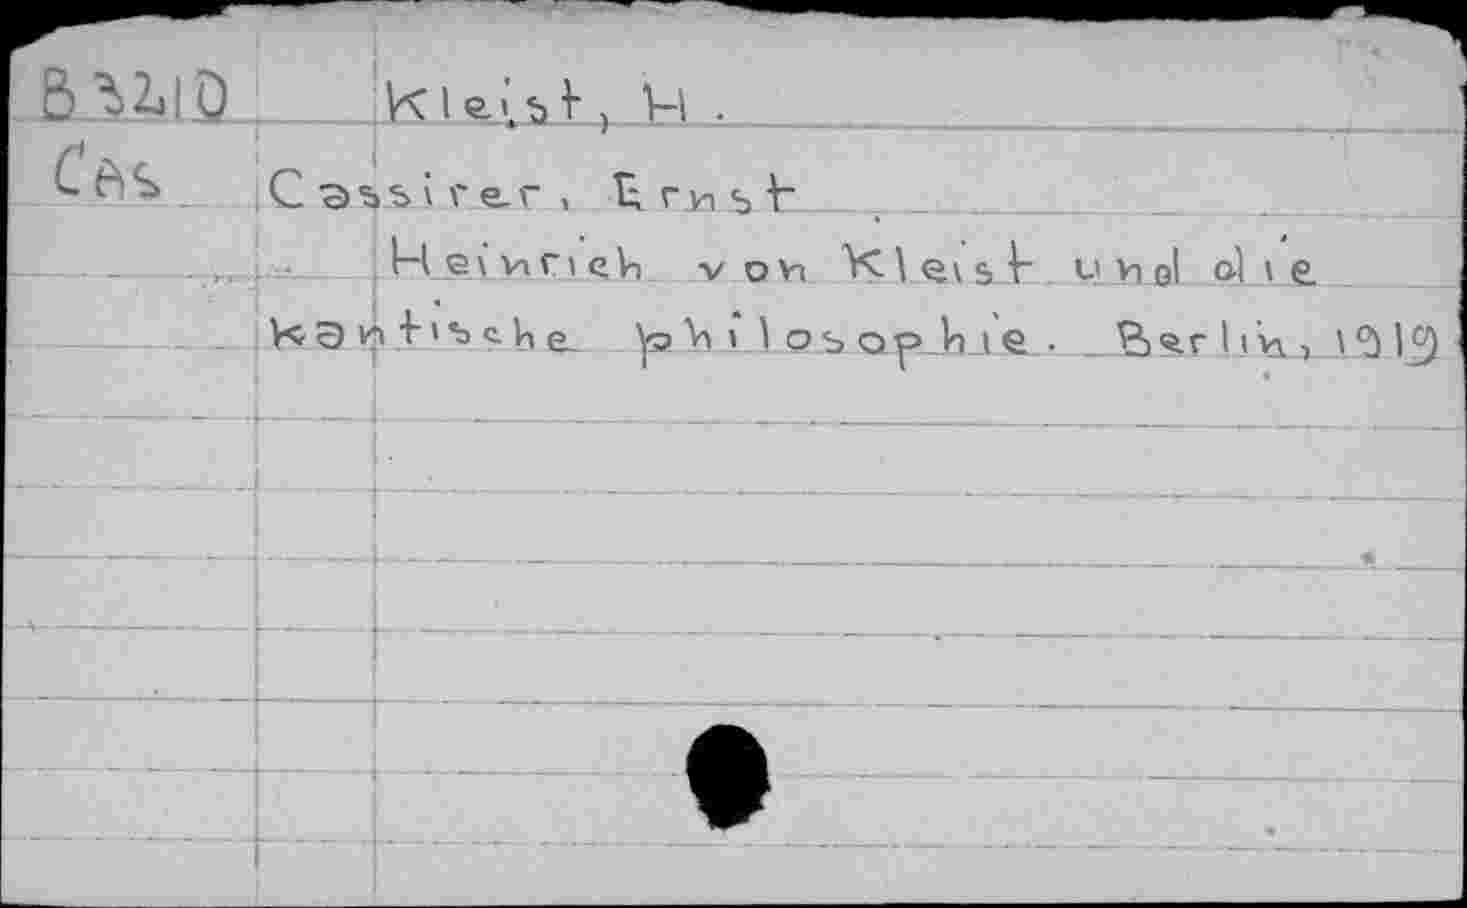 B3210 Kleist, H.
Cas Cassirer, Ernst
Heinrich von Kleist und die
kantische philosophie. Berlin, 1919